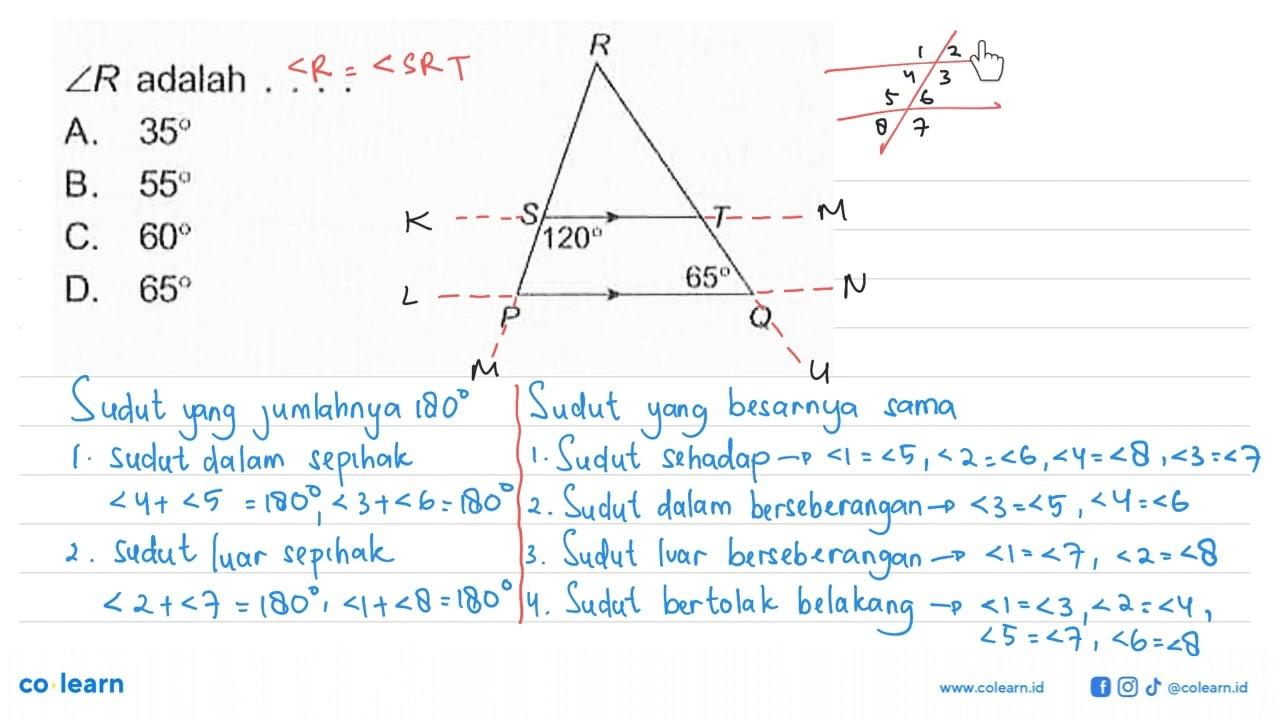 ∠R adalah . . . .
<R = <SRT
A. 35°
B. 55°
C. 60°
D. 65°
R
S
T
120°
65°
P
Q
K
M
L
N
M
U
1 2
4 3
5 6
8 7
Sudut yang jumlahnya 180°
1. Sudut dalam sepihak
<4 + <5 = 180°, <3 + <6 = 180°
2. Sudut luar sepihak
<2 + <7 = 180°, <1 + <8 = 180°
Sudut yang besarnya sama
1. Sudut sehadap → <1 = <5, <2 = <6, <4 = <8, <3 = <7
2. Sudut dalam berseberangan → <3 = <5, <4 = <6
3. Sudut luar berseberangan → <1 = <7, <2 = <8
4. Sudut bertolak belakang → <1 = <3, <2 = <4,
<5 = <7, <6 = <8
co learn
www.colearn.id
@colearn.id